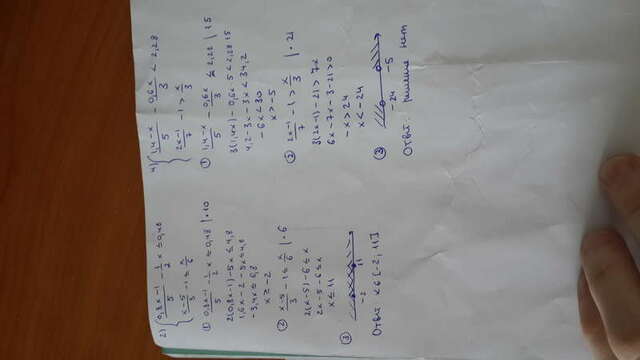 2) { (0,8x-1)/5 - 1/2 x ≤ 0,48
(x-5)/3 - 1 ≤ x/6
① (0,8x-1)/5 - 1/2 x ≤ 0,48 | • 10
2(0,8x-1) - 5x ≤ 4,8
1,6x - 2 - 5x ≤ 4,8
-3,4x ≤ 6,8
x ≥ -2
② (x-5)/3 - 1 ≤ x/6 | • 6
2(x-5) - 6 ≤ x
2x - 5 - 6 ≤ x
x ≤ 11
③
-2 11
Ответ: x ∈ [-2; 11]
4) { (1,4-x)/5 - 0,6x/3 < 2,28
(2x-1)/7 - 1 > x/3
① (1,4-x)/5 - 0,6x/3 < 2,28 | 15
3(1,4x) - 0,6x·5 < 2,28·15
4,2 - 3x - 3x < 34,2
-6x < 30
x > -5
② (2x-1)/7 - 1 > x/3 | • 21
3(2x-1) - 21 > 7x
6x - 7x - 3 - 21 > 0
-x > 24
x < -24
③
-24 -5
Ответ: решение нет